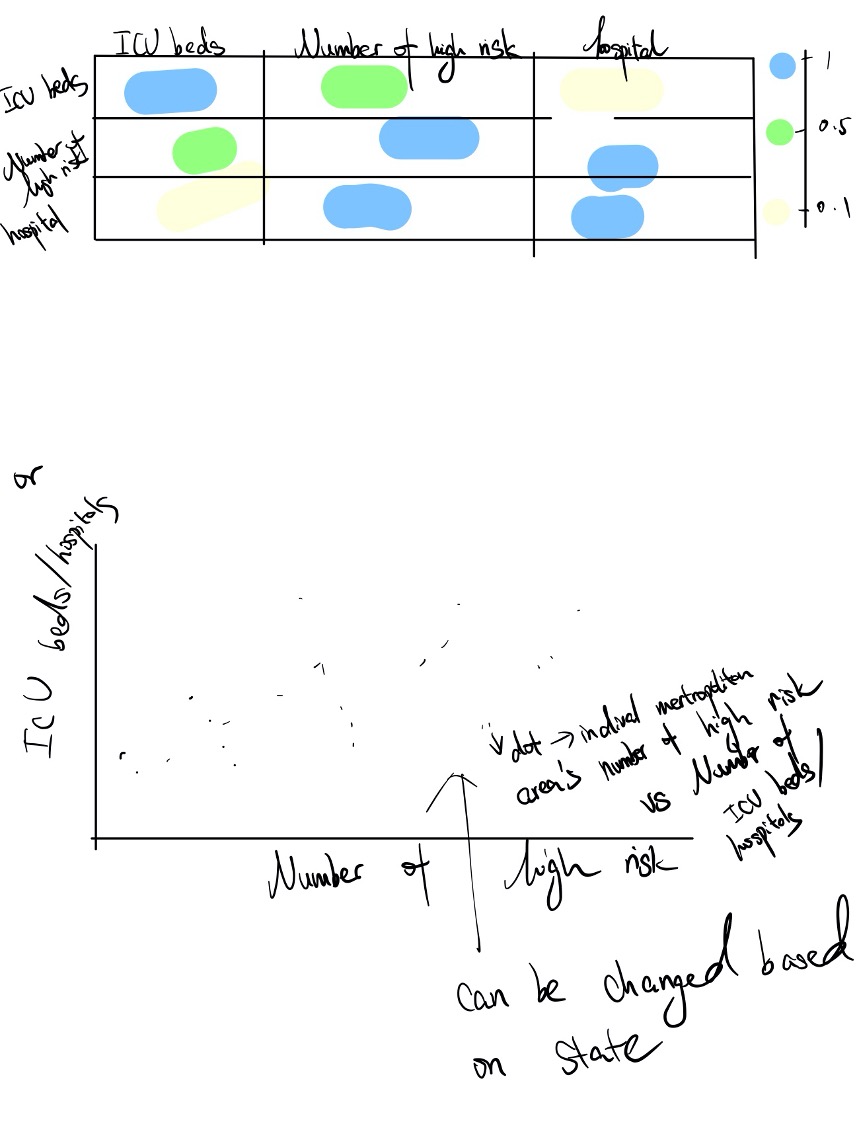 ICU beds Number of high risk hospital
ICU beds
Number of
high risk
hospital
1
0.5
0.1
or
ICU beds/hospitals
dot → indival mertropoliton
area's number of high risk
vs Number of
ICU beds/
hospitals
Number of high risk
can be changed based
on state